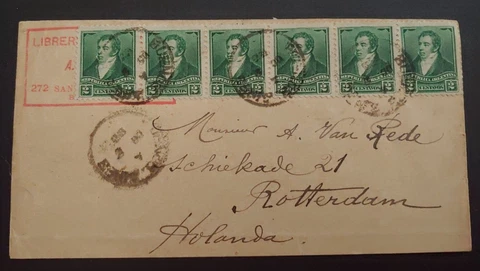 LIBRER
A.
272 SAN
REPUBLICA ARGENTINA
2 CENTAVOS 2
REPUBLICA ARGENTINA
2 CENTAVOS 2
REPUBLICA ARGENTINA
2 CENTAVOS 2
REPUBLICA ARGENTINA
2 CENTAVOS 2
REPUBLICA ARGENTINA
2 CENTAVOS 2
REPUBLICA ARGENTINA
2 CENTAVOS 2
Monsieur A. Van Rede
Schiekade 21
Rotterdam
Holanda.